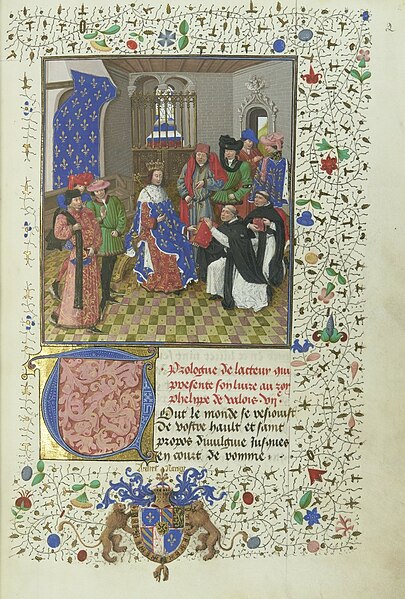 2
Prologue de lacteur qui
presente son liure au roy
phelipe de valois. vj͛
Out le monde se resioust
de vostre hault et saint
propos diuulgue iusques
en court de romme.